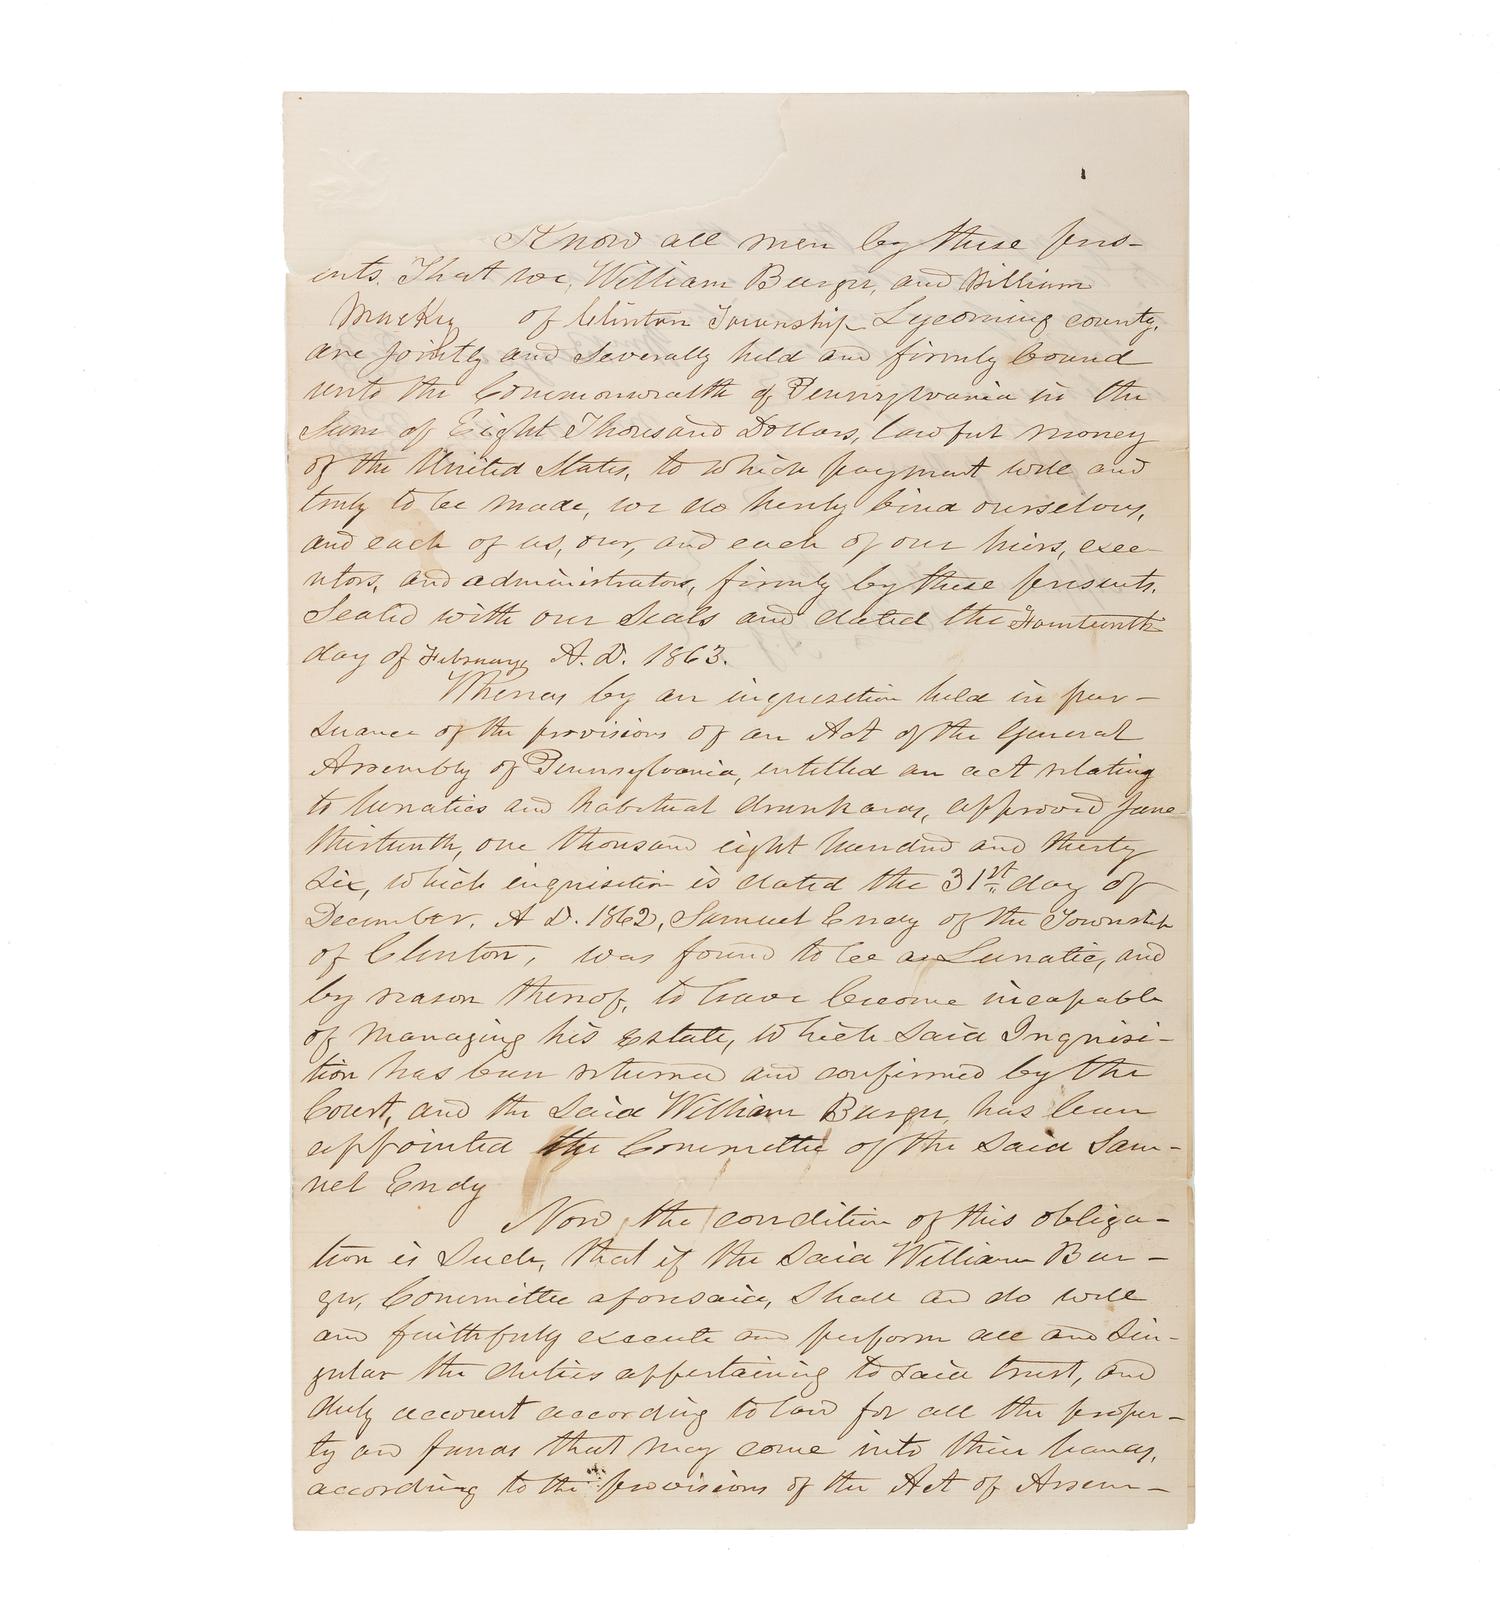 Know all men by these pres-
ents, That we, William Burger, and William
Mackey of Clinton Township Lycoming county,
are jointly and severally held and firmly bound
unto the Commonwealth of Pennsylvania in the
Sum of Eight Thousand Dollars, lawful money
of the United States, to which payment well and
truly to be made, we do hereby bind ourselves,
and each of us, our, and each of our heirs, exec-
utors, and administrators, firmly by these presents.
Sealed with our Seals and dated the Fourteenth
day of February A. D. 1863.
Whereas by an inquisition held in pur-
suance of the provisions of an Act of the General
Assembly of Pennsylvania, entitled an act relating
to lunatics and habitual drunkards, approved June
thirteenth, one thousand eight hundred and thirty
six, which inquisition is dated the 31st day of
December, A D. 1862, Samuel Endy of the Township
of Clinton, was found to be a Lunatic, and
by reason thereof, to have become incapable
of managing his Estate, which said Inquisi-
tion has been returned and confirmed by the
Court, and the said William Burger, has been
appointed the Committee of the said Sam-
uel Endy
Now the condition of this obliga-
tion is Such, that if the said William Bur-
ger, Committee aforesaid, Shall and do well
and faithfuly execute and perform all and Sin-
gular the duties appertaining to said trust, and
duly account according to law for all the proper-
ty and funds that may come into their hands,
according to the provisions of the Act of Assem-